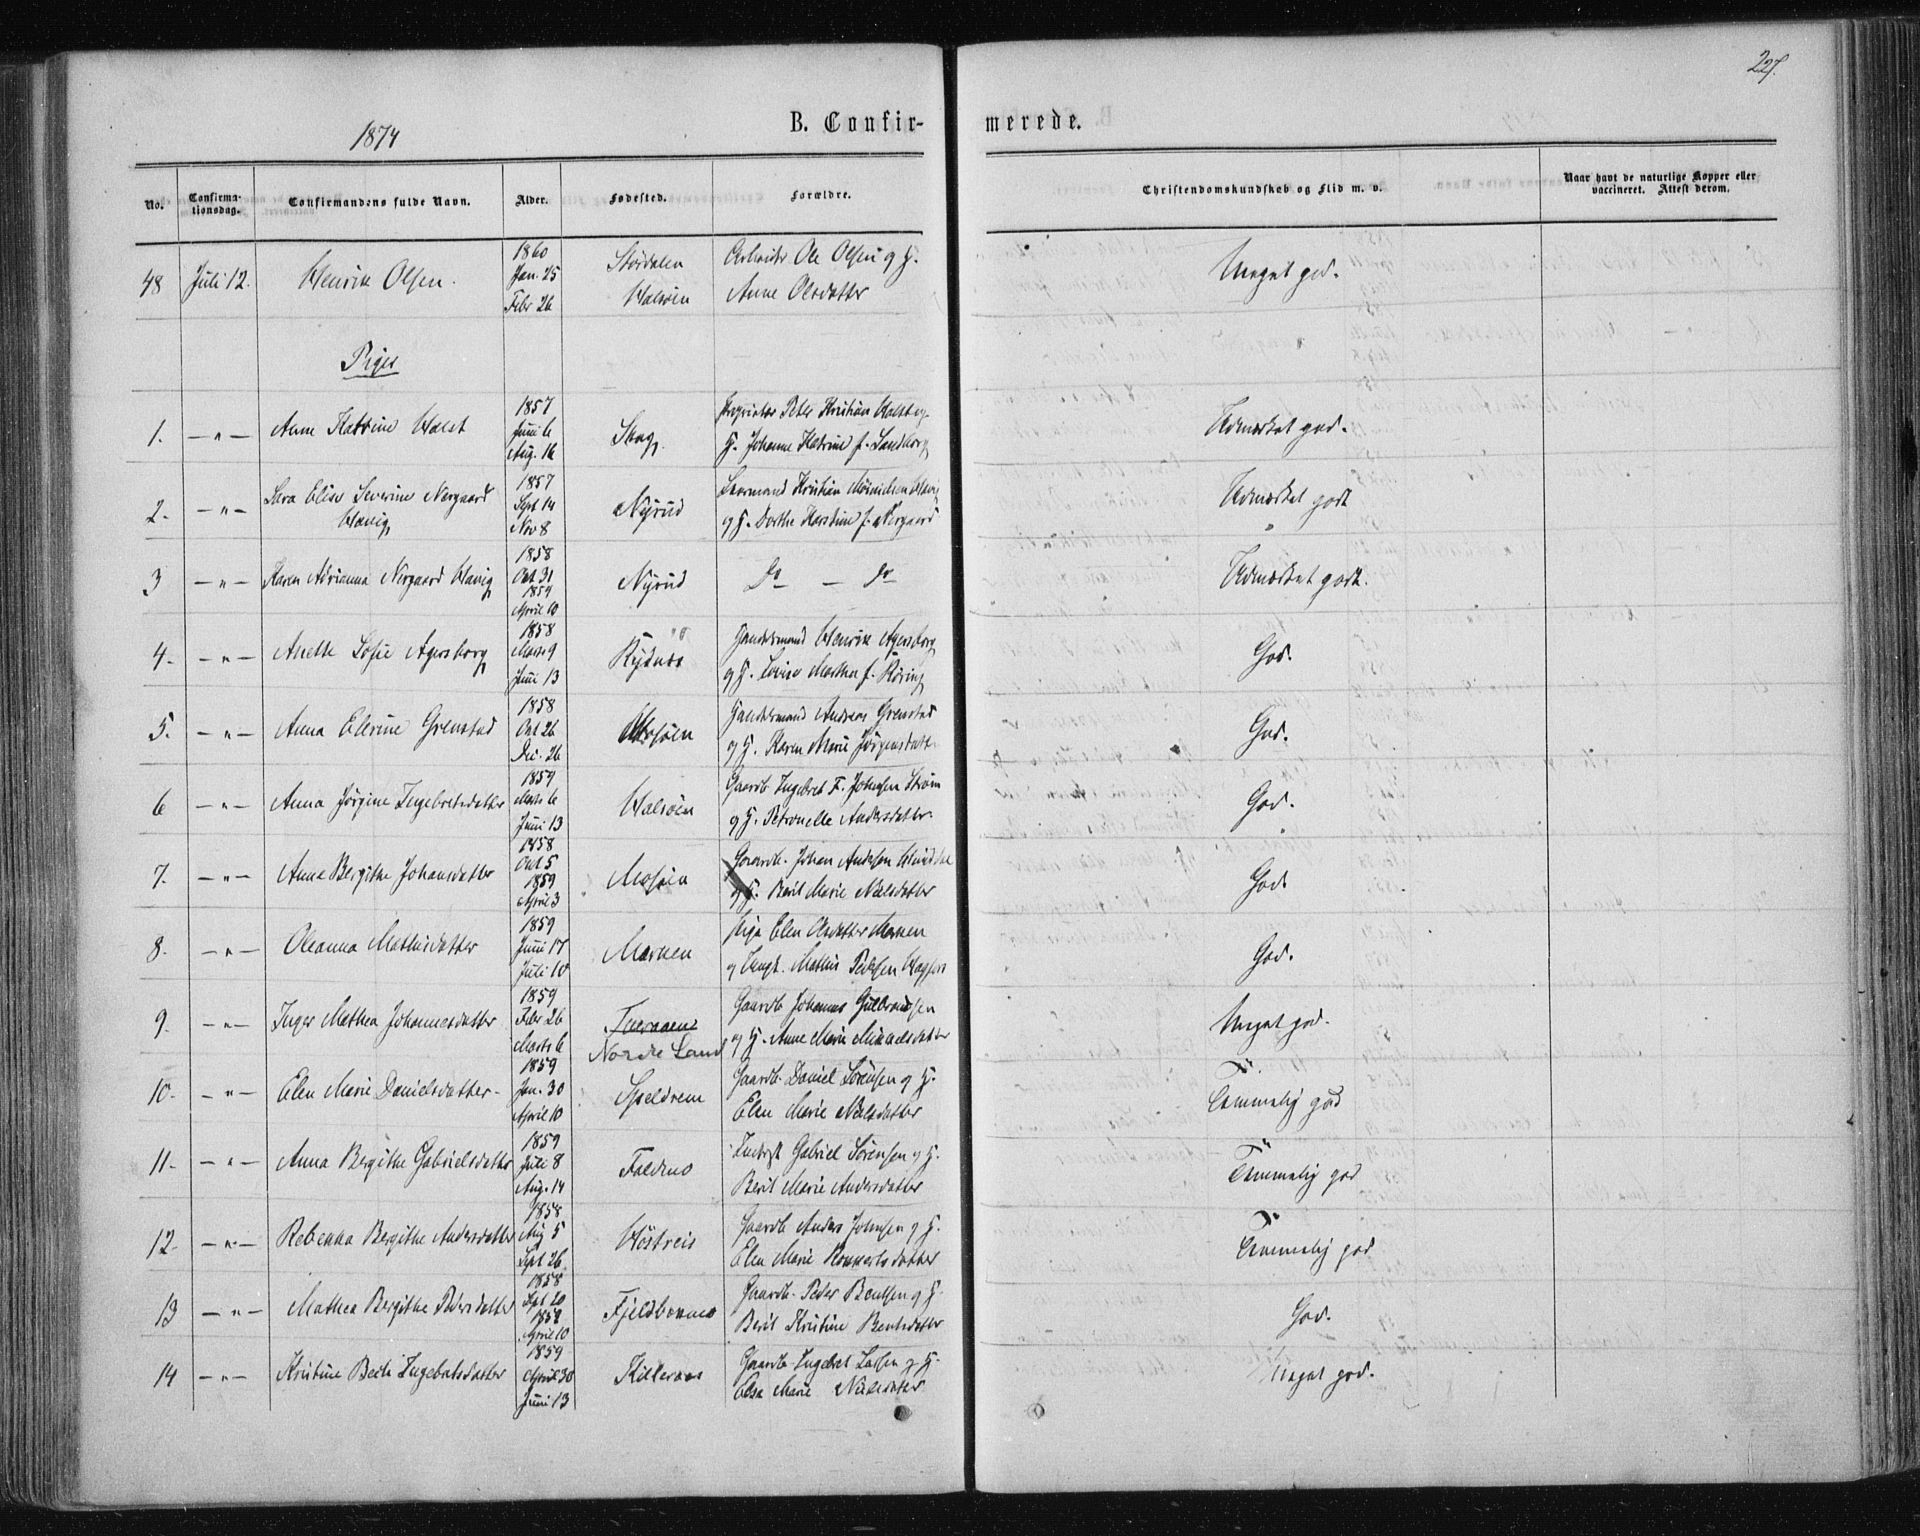 227.
1874
B. Confirmerede.
No.
Confirmationsdag.
Confirmandens fulde Navn.
Alder.
Fødested.
Forældre.
Christendomskundskab og Flid m. v.
Naar havt de naturlige Kopper eller vaccineret. Attest derom.
48 Juli 12. Henrik Olsen. 1860 Jan. 25 Febr 26 Halsöen Arbeider Ole Olsen og H. Anne Olsdatter Meget god.
Piger
1. — " — Anne Katrine Holst 1857 Juni 6 Aug. 16 Skog Proprietær Peter Kristian Holst og H. Johanne Katrine f. Sandborg Udmærket god.
2. — " — Sara Elise Severine Nergaard Havig 1857 Sept 14 Nov 8 Nyrud Kristian Havig og H. Dorthe f. Nergaard Udmærket godt
3 — " — Karen Adrianna Nergaard Havig 1858 Okt 31 1859 April 10 Nyrud Do — Do Udmærket godt.
4. — " — Anette Sofie Agersborg 1858 Marts 9 Juni 13 Handelsmand Henrik Agersborg og H. Lovise Marthea f. Röring God.
5. — " — Anna Elerine Grenstad 1858 Okt 26 Dec. 26 Mosjöen Handelsmand Andreas Grenstad og H. Karen Marie Jörgensdatt. God.
6 — " — Anna Jörgine Ingebretsdatter 1859 Marts 6 Juni 13 Halsöen Gaardb Ingebret F. Johnsen Ström og H. Petronelle Andersdatter. God.
7. — " — Anna Bergithe Johansdatter 1858 Okt 5 1859 April 3 Mosjöen Gaardb. Johan Andersen og H. Berit Marie Nielsdatter God
8. — " — Oleanna Mathisdatter 1859 Juni 17 Juli 10 Marken Pige Elen Olsdatter Marken og Ungk. Mathis Pedersen God.
9. — " — Inger Mathea Johannesdatter 1859 Febr 26 Marts 6 Tveraaen Nordre Land Gaardb Johannes Gulbrandsen og H. Anne Marie Mikkelsdatter Meget god.
10. — " — Elen Marie Danielsdatter 1859 Jan. 30 April 10 Speldrem Gaardb. Daniel Sörensen og H. Elen Marie Nielsdatter Temmelig god
11. — " — Anna Bergithe Gabrielsdatter 1859 Juli 8 Aug. 14 Faldmo Gabriel Sörensen og H. Berit Marie Andersdatter Temmelig god
12. — " — Rebekka Bergithe Andersdatter 1858 Aug 5 Sept 26 Gaardb Anders Johnsen og H. Elen Marie Temmelig god
13 — " — Mathea Bergithe Pedersdatter 1858 Sept 20 April 10 Gaardb. Peder Bentsen og H. Berit Kristine Bentsdatter God.
14 — " — Kristine Ingebretsdatter 1859 April 30 Juni 13 Gaardb. Ingebret Larsen og H. Elsa Marie Nielsdatter Meget god.